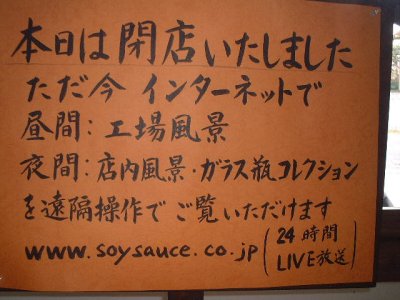 本日は閉店いたしました
ただ今 インターネットで
昼間：工場風景
夜間：店内風景・ガラス瓶コレクション
を遠隔操作でご覧いただけます
www.soysauce.co.jp (24時間 LIVE放送)